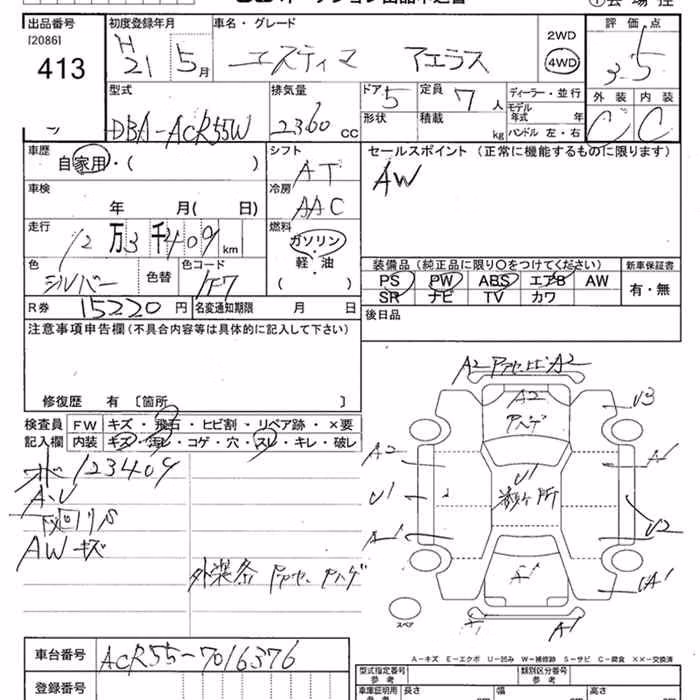 出品番号 初度登録年月 車名・グレード 評価点
[2086]
413
H 21 5月 エスティマ アエラス 2WD 4WD 3.5
型式 排気量 ドア 定員 ディーラー・並行 外装 内装
DBA-ACR55W 2360 CC 5 7人 モデル年式 年 C C
形状 積載 kg ハンドル 左・右
車歴 自家用・( ) シフト AT セールスポイント (正常に機能するものに限ります)
AW
車検 年 月( 日) 冷房 AAC
走行 12万3千409km 燃料 ガソリン 軽・油 ( )
色 シルバー 色替 色コード 1F7
装備品 (純正品に限り○をつけてください) 新車保証書
PS PW ABS エアB AW 有・無
SR ナビ TV カワ
R券 15220円 名変通知期限 月 日
後日品
注意事項申告欄 (不具合内容等は具体的に記入して下さい)
修復歴 有 [箇所 ]
検査員 FW キズ・飛石・ヒビ割・リペア跡・×要
記入欄 内装 キズ・汚レ・コゲ・穴・スレ・キレ・破レ
123409
A・U
下廻りS
AW キズ
A2 A2
A2
ハゲ
U3
A2 A1
U1 U1 U2
A1
A1 UA1
A1
スペア
A-キズ E-エクボ U-凹み W-補修跡 S-サビ C-腐食 ××-交換済
車台番号 ACR55-7016376
登録番号
型式指定番号 類別区分番号
参考 参考
車庫証明用 長さ 幅 高さ